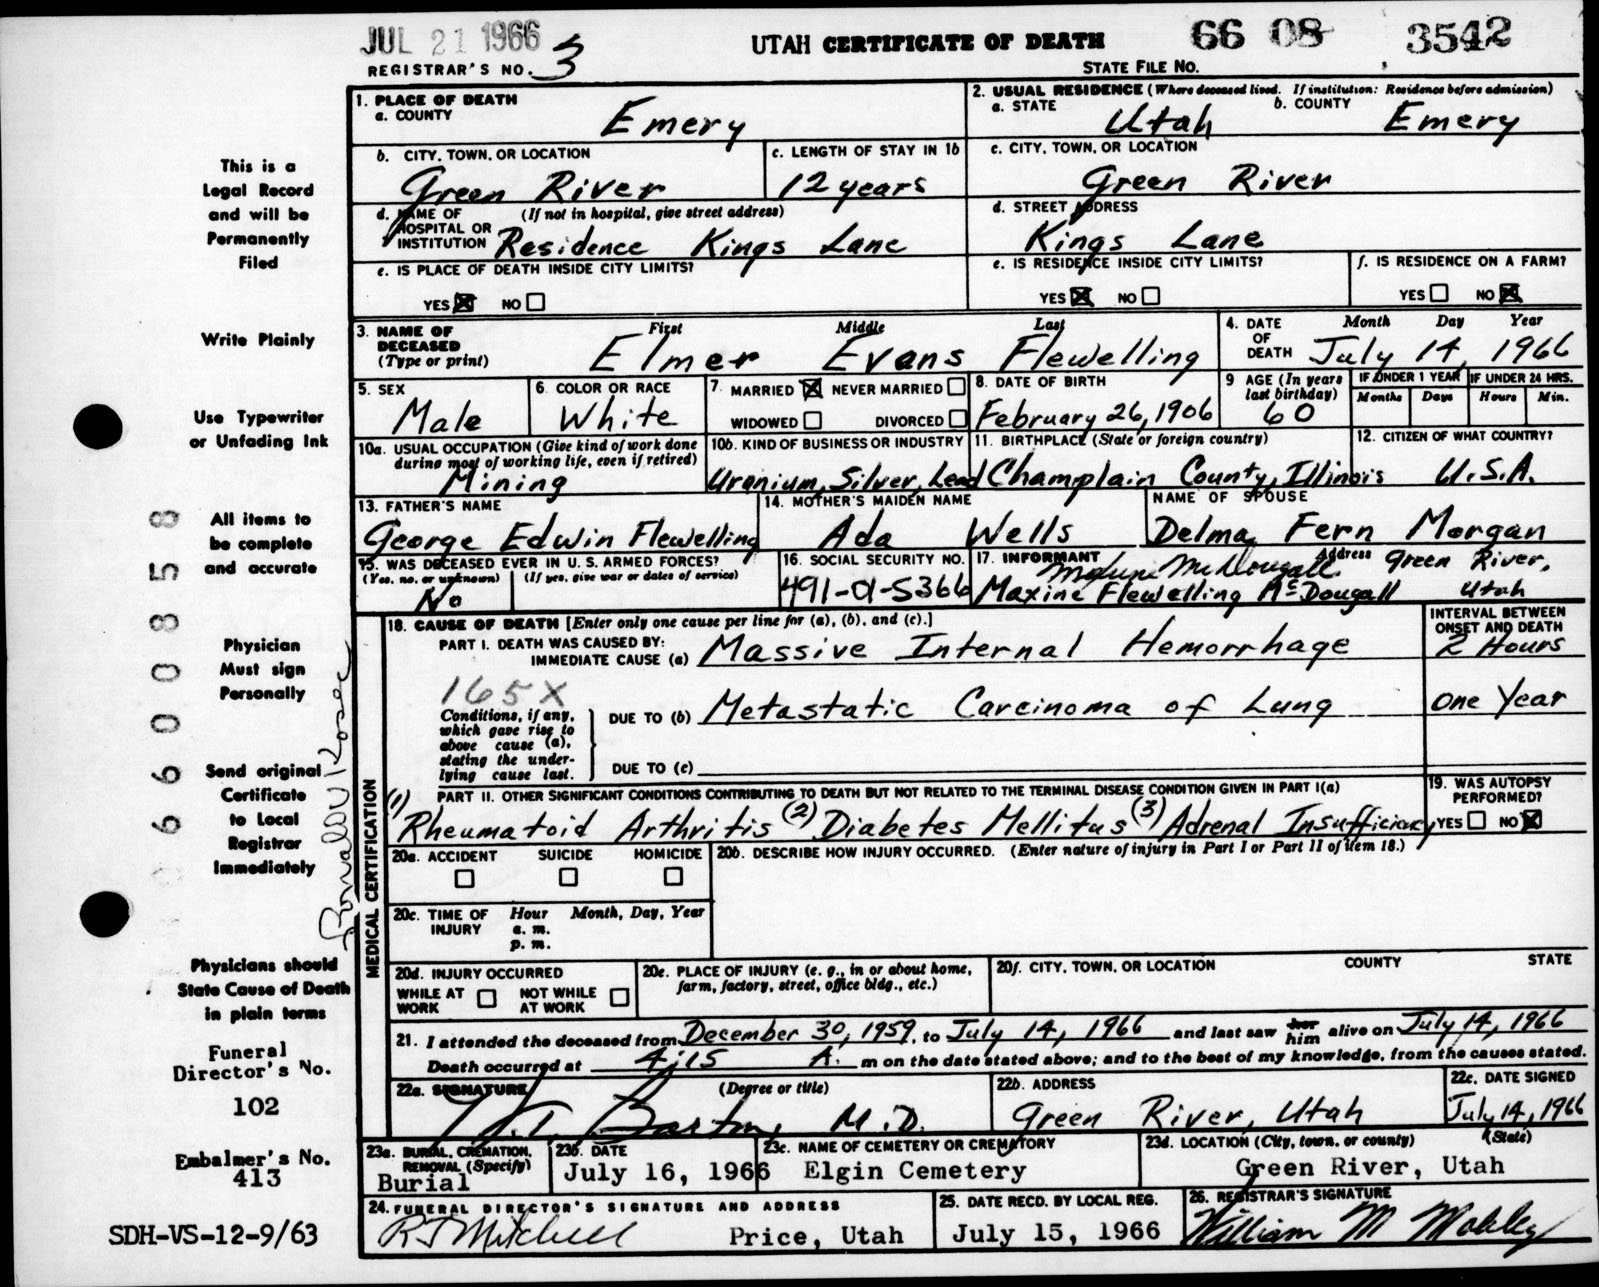 JUL 21 1966
UTAH CERTIFICATE OF DEATH
66 08 3542
REGISTRAR'S NO. 3
STATE FILE NO.
This is a
Legal Record
and will be
Permanently
Filed
Write Plainly
Use Typewriter
or Unfading Ink
All items to
be complete
and accurate
Physician
Must sign
Personally
Send original
Certificate
to Local
Registrar
Immediately
Physicians should
State Cause of Death
in plain terms
Funeral
Director's No.
102
Embalmer's No.
413
SDH-VS-12-9/63
66008858
1. PLACE OF DEATH
a. COUNTY
Emery
2. USUAL RESIDENCE (Where deceased lived. If institution: Residence before admission)
a. STATE b. COUNTY
Utah Emery
b. CITY, TOWN, OR LOCATION
Green River
c. LENGTH OF STAY IN 1b
12 years
c. CITY, TOWN, OR LOCATION
Green River
d. NAME OF (If not in hospital, give street address)
HOSPITAL OR
INSTITUTION Residence Kings Lane
d. STREET ADDRESS
Kings Lane
e. IS PLACE OF DEATH INSIDE CITY LIMITS?
YES NO
e. IS RESIDENCE INSIDE CITY LIMITS?
YES NO
f. IS RESIDENCE ON A FARM?
YES NO
3. NAME OF First Middle Last
DECEASED
(Type or print)
Elmer Evans Flewelling
4. DATE Month Day Year
OF
DEATH July 14, 1966
5. SEX
Male
6. COLOR OR RACE
White
7. MARRIED NEVER MARRIED
WIDOWED DIVORCED
8. DATE OF BIRTH
February 26, 1906
9 AGE (In years
last birthday)
60
IF UNDER 1 YEAR IF UNDER 24 HRS.
Months Days Hours Min.
10a. USUAL OCCUPATION (Give kind of work done
during most of working life, even if retired)
Mining
10b. KIND OF BUSINESS OR INDUSTRY
Uranium, Silver, Lead
11. BIRTHPLACE (State or foreign country)
Champlain County, Illinois
12. CITIZEN OF WHAT COUNTRY?
U.S.A.
13. FATHER'S NAME
George Edwin Flewelling
14. MOTHER'S MAIDEN NAME
Ada Wells
NAME OF SPOUSE
Delma Fern Morgan
15. WAS DECEASED EVER IN U. S. ARMED FORCES?
(Yes, no, or unknown) (If yes, give war or dates of service)
No
16. SOCIAL SECURITY NO.
491-01-5366
17. INFORMANT Address Green River,
Maxine McDougall
Maxine Flewelling McDougall Utah
MEDICAL CERTIFICATION
18. CAUSE OF DEATH [Enter only one cause per line for (a), (b), and (c).]
INTERVAL BETWEEN
ONSET AND DEATH
PART I. DEATH WAS CAUSED BY:
IMMEDIATE CAUSE (a) Massive Internal Hemorrhage 2 Hours
165X
Conditions, if any,
which gave rise to
above cause (a),
stating the under-
lying cause last.
DUE TO (b) Metastatic Carcinoma of Lung One Year
DUE TO (c)
PART II. OTHER SIGNIFICANT CONDITIONS CONTRIBUTING TO DEATH BUT NOT RELATED TO THE TERMINAL DISEASE CONDITION GIVEN IN PART I(a)
(1) Rheumatoid Arthritis (2) Diabetes Mellitus (3) Adrenal Insufficiency
19. WAS AUTOPSY
PERFORMED?
YES NO
20a. ACCIDENT SUICIDE HOMICIDE
20b. DESCRIBE HOW INJURY OCCURRED. (Enter nature of injury in Part I or Part II of item 18.)
20c. TIME OF Hour Month, Day, Year
INJURY a. m.
p. m.
20d. INJURY OCCURRED
WHILE AT NOT WHILE
WORK AT WORK
20e. PLACE OF INJURY (e. g., in or about home,
farm, factory, street, office bldg., etc.)
20f. CITY, TOWN, OR LOCATION COUNTY STATE
21. I attended the deceased from December 30, 1959, to July 14, 1966 and last saw her him alive on July 14, 1966
Death occurred at 4:15 A. m on the date stated above; and to the best of my knowledge, from the causes stated.
22a. SIGNATURE (Degree or title)
Barton, M.D.
22b. ADDRESS
Green River, Utah
22c. DATE SIGNED
July 14, 1966
23a. BURIAL, CREMATION,
REMOVAL (Specify)
Burial
23b. DATE
July 16, 1966
23c. NAME OF CEMETERY OR CREMATORY
Elgin Cemetery
23d. LOCATION (City, town, or county) (State)
Green River, Utah
24. FUNERAL DIRECTOR'S SIGNATURE AND ADDRESS
R J Mitchell Price, Utah
25. DATE RECD. BY LOCAL REG.
July 15, 1966
26. REGISTRAR'S SIGNATURE
William M Mobley